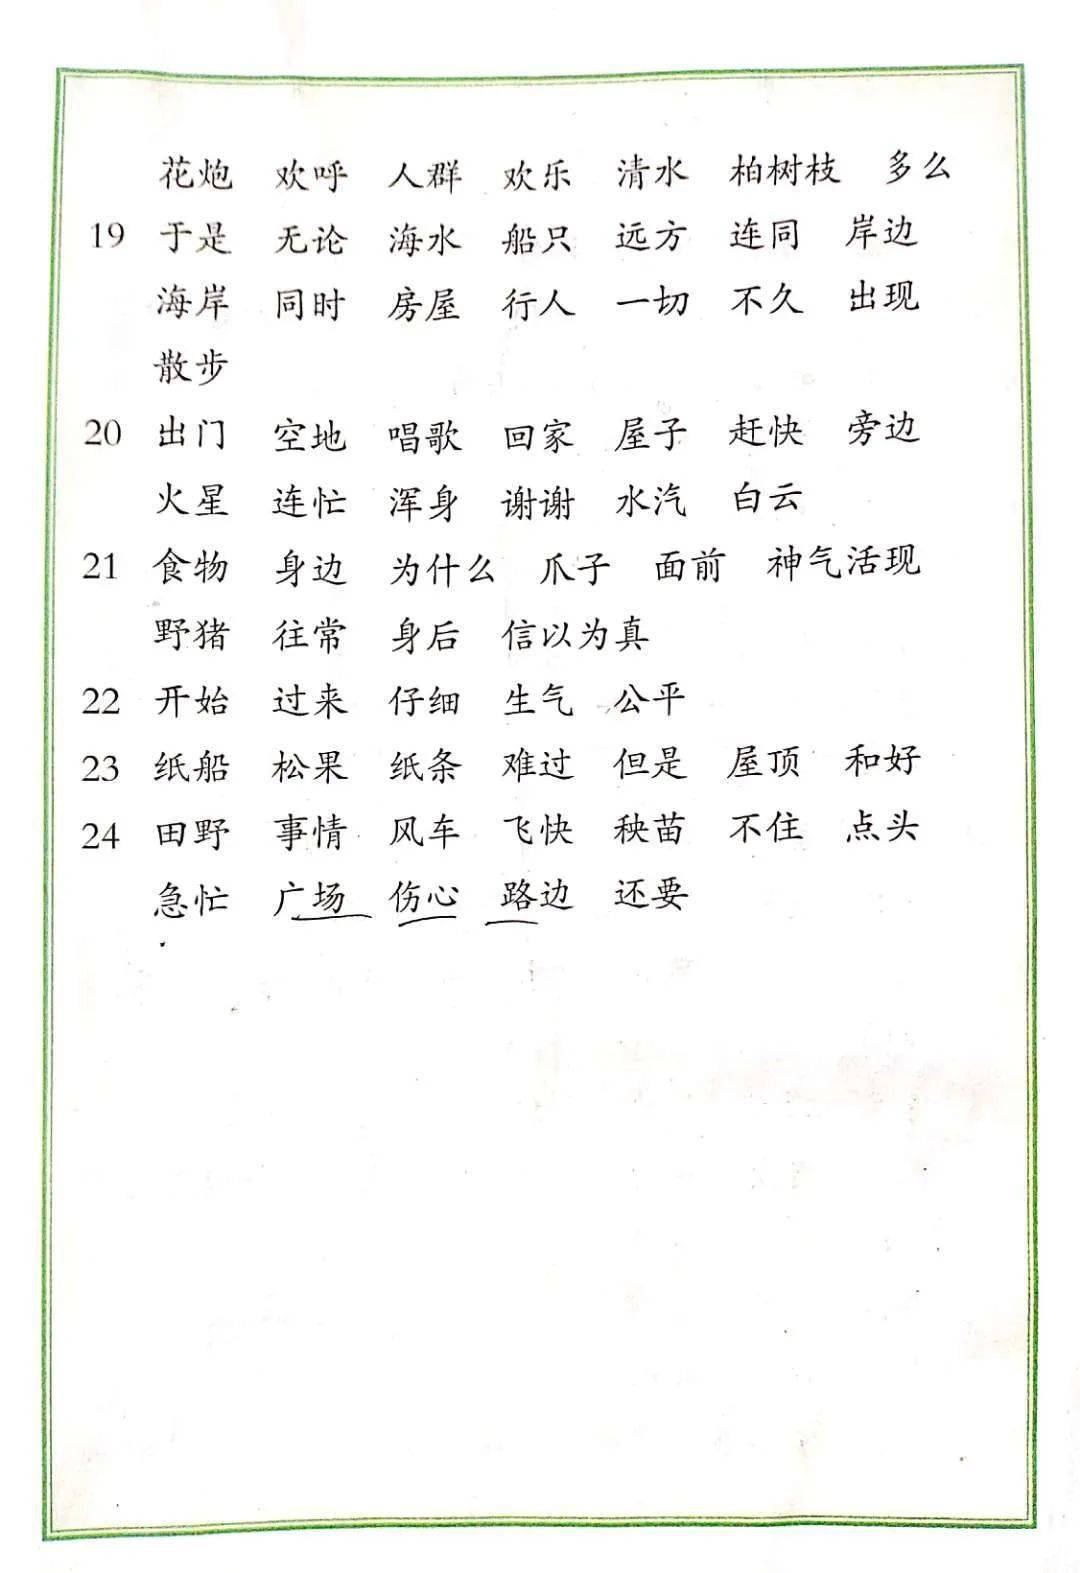 花炮 欢呼 人群 欢乐 清水 柏树枝 多么
19 于是 无论 海水 船只 远方 连同 岸边
海岸 同时 房屋 行人 一切 不久 出现
散步
20 出门 空地 唱歌 回家 屋子 赶快 旁边
火星 连忙 浑身 谢谢 水汽 白云
21 食物 身边 为什么 爪子 面前 神气活现
野猪 往常 身后 信以为真
22 开始 过来 仔细 生气 公平
23 纸船 松果 纸条 难过 但是 屋顶 和好
24 田野 事情 风车 飞快 秧苗 不住 点头
急忙 广场 伤心 路边 还要